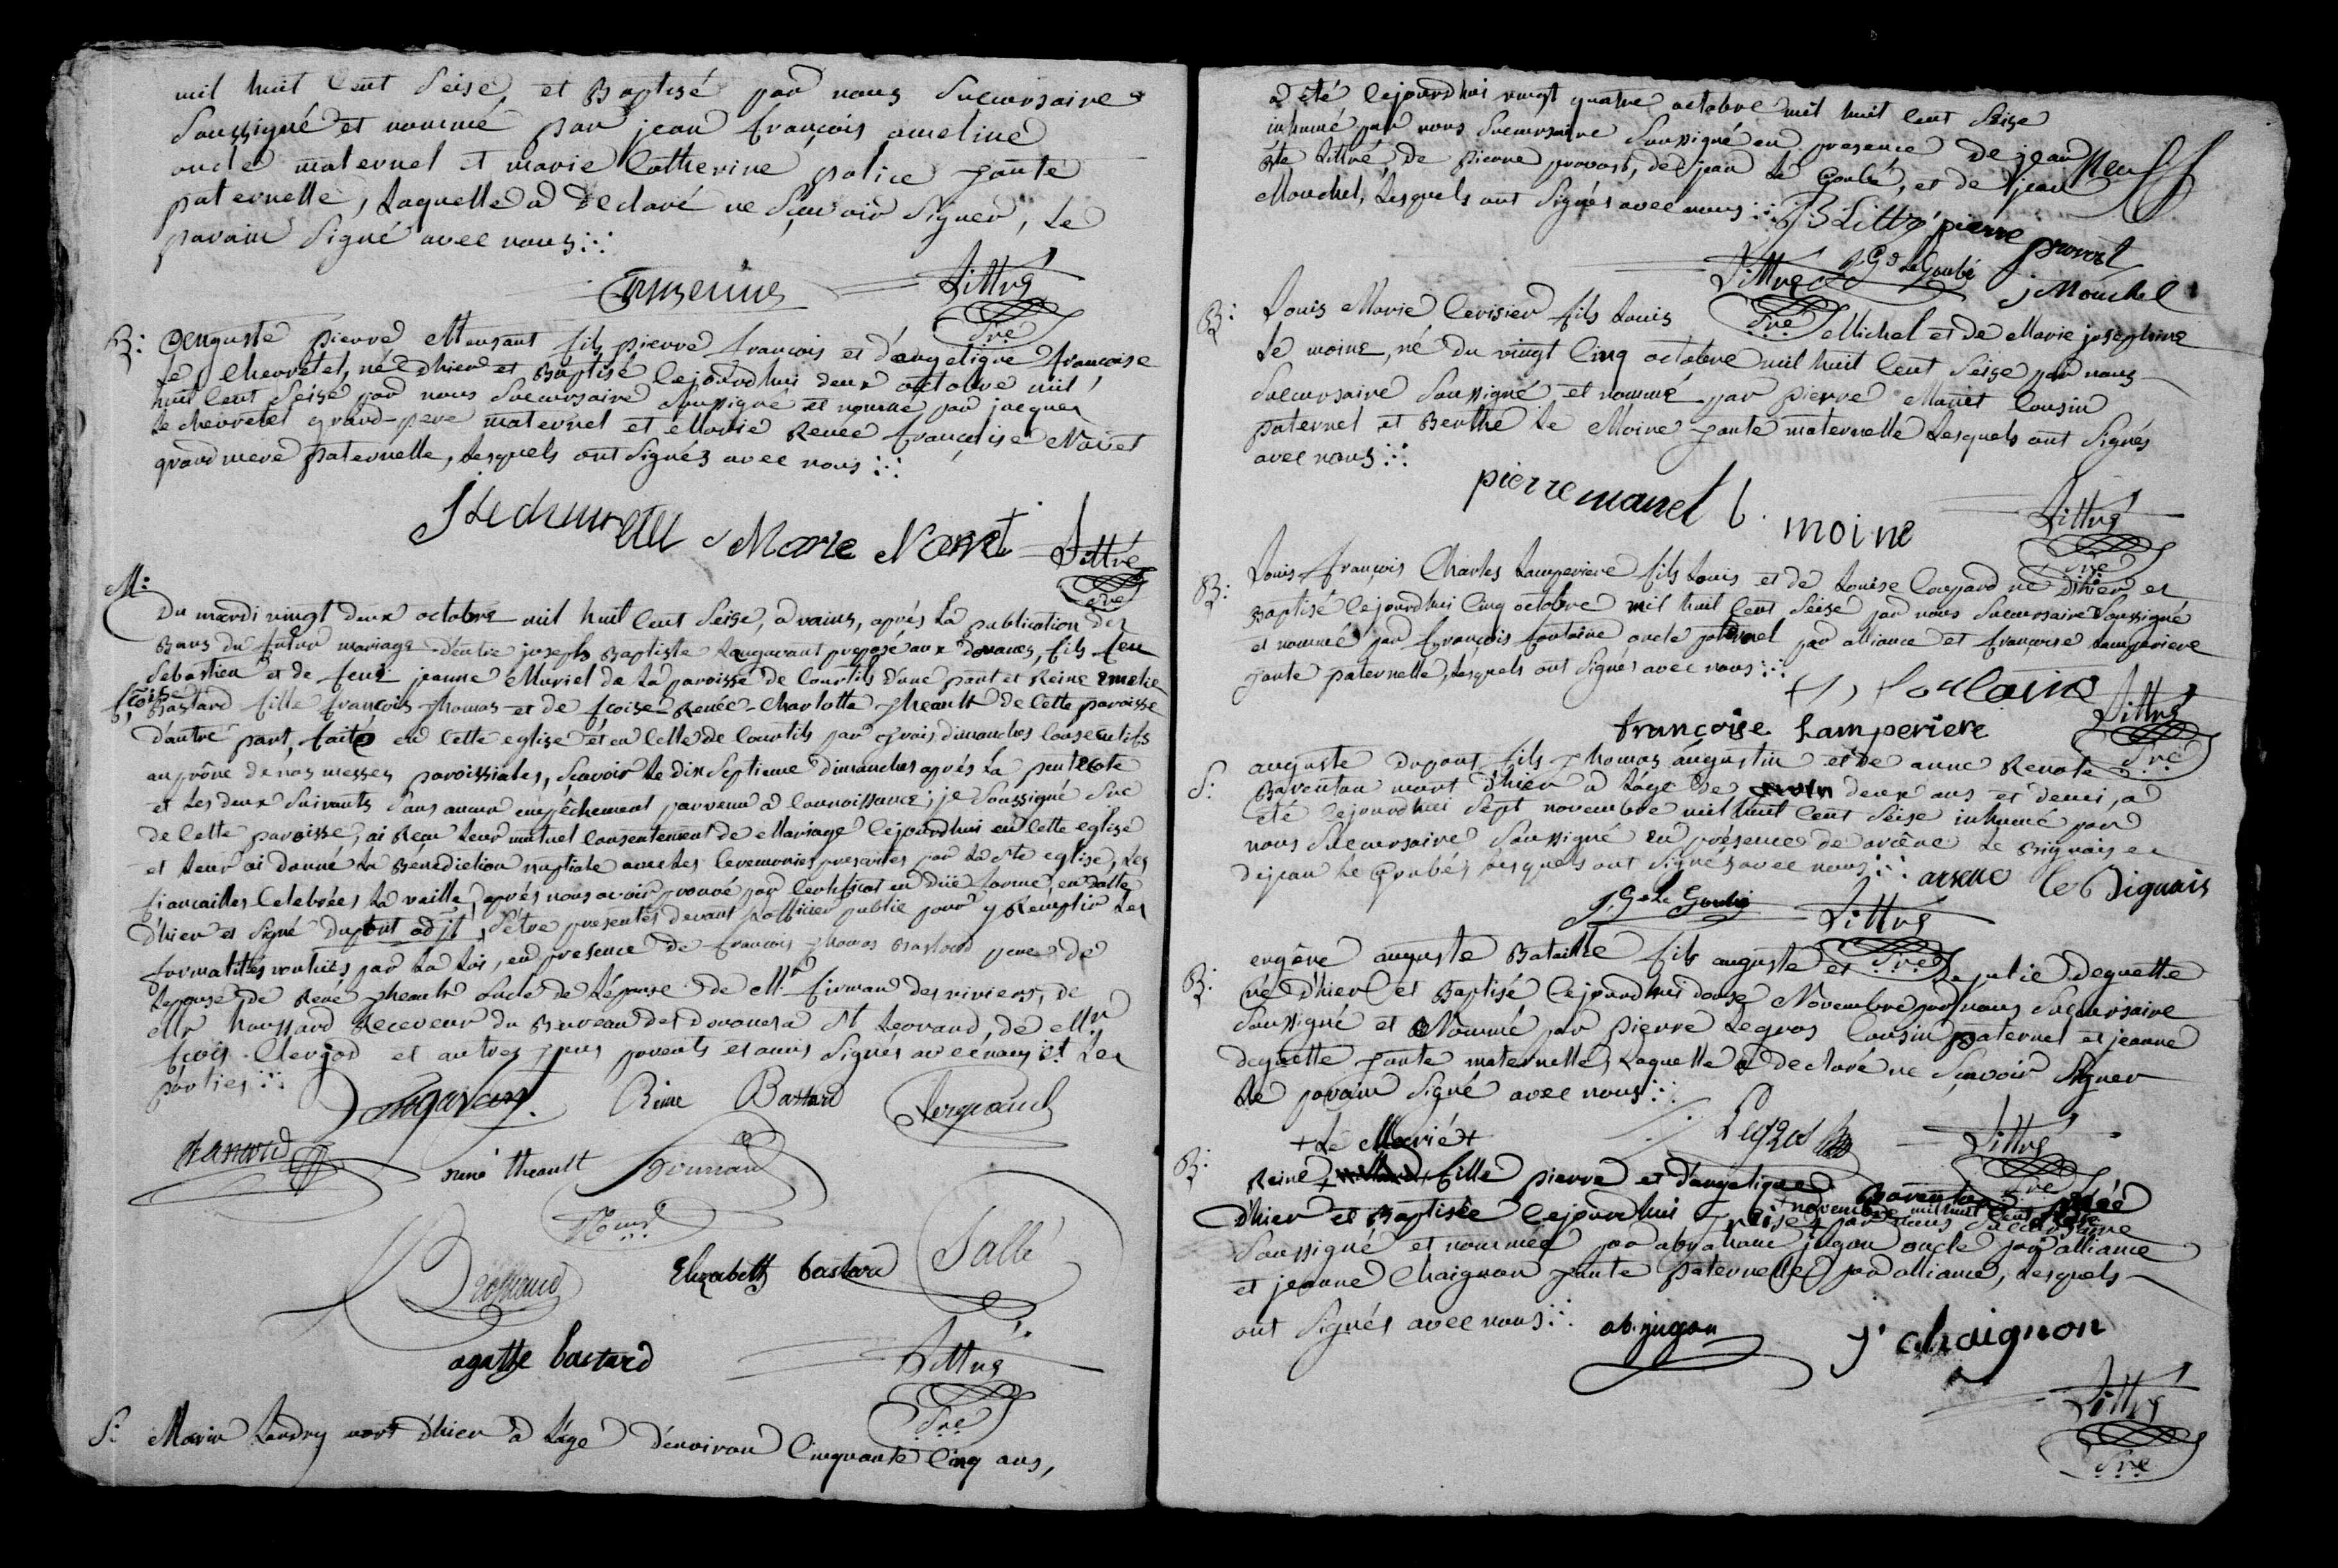 mil huit Cent Seise et Baptisé par nous Succursaire
Soussigné et nommé par jean françois ameline
oncle maternel et marie Catherine police tante
paternelle, Laquelle a déclaré ne Scavoir Signer, Le
parain Signé avec nous
Littré
Sre
B: auguste pierre fils pierre françois et d'angeligue françoise
Le Chevretel, né d'hier et Baptisé Cejourdhui deux octobre mil
huit Cent Seise par nous Succursaire Soussigné et nommé par jacques
Le chevretel grand-pere maternel et Marie Renée françoise Navet
grand mere paternelle, Lesquels ont Signés avec nous
Marie Navet Littré
Sre
M:
Du mardi vingt deux octobre mil huit Cent Seise, a vains, aprés La publication des
Bans du futur mariage d'entre joseph Baptiste Langavant preposé aux doüanes, fils feu
Sebastien et de feue jeanne Muriel de La paroisse de Courtils d'une part et Reine emelie
fçoise Bastard fille françois-thomas et de fçoise-Renée-Charlotte theault de Cette paroisse
d'autre part, faite en Cette eglise et en Celle de Courtils par trois dimanches Consecutifs
au prône de nos messes paroissiales, Scavoir Le dix Septieme dimanches aprés La pentecote
et Les deux Suivants Sans aucun empêchement parvenu a Connoissance; je Soussigné Sre
de Cette paroisse, ai Recu Leur mutuel Consentement de Mariage Cejourdhui en Cette eglise
et Leur ai donné La Bénédiction nuptiale avec Les Ceremonies prescrites par La Ste eglise, Les
fiancailles Celebrées La veille, aprés nous avoir prouvé par Certificat en düe forme, en datte
d'hier et Signé Dupont adjt, S'étre presentés devant L'officier public pour y Remplir Les
formalités voulües par La Loi, en presence de françois thomas Bastard pere de
Lepouse de René theault oncle de Lépouse de Mr firman desriviers, de
Mr houssard Receveur du Bureau des douanes a St Leonard, de Mr
fçois Clerjod et autres parents et amis Signés avec nous et Les
parties
Langavant Reine Bastard
Bastard René theault
Elizabeth bastard Sallé
agathe bastard Littré
Sre
S: Marin Landry mort d'hier a L'áge d'environ Cinquante Cinq ans,
a été Cejourdhui vingt quatre octobre mil huit Cent Seise
inhumé par nous Succursaire Soussigné en presence de jean
Bte Littré, de pierre provost, de jean Le Goubé, et de jean
Mouchel, Lesquels ont Signés avec nous JB Littré pierre provost
Littré J G Le Goubé j Mouchel
Sre
B: Louis Marie Cerisier fils Louis Michel et de Marie josephine
Le moine, né du vingt Cinq octobre mil huit Cent Seise par nous
Succursaire Soussigné et nommé par pierre Manet Cousin
paternel et Berthe Le Moine tante maternelle Lesquels ont Signés
avec nous
pierre manet b. moine Littré
Sre
B: Louis françois Charles Lamperiere fils Louis et de Louise né d'hier et
Baptisé Cejourdhui Cinq octobre mil huit Cent Seise par nous Succursaire Soussigné
et nommé par françois fontaine oncle paternel par alliance et françoise Lamperiere
tante paternelle, Lesquels ont Signés avec nous
francoise Lamperiere Littré
Sre
S: auguste Dupont fils thomas augustin et de anne Renote
Baventon mort d'hier a L'áge de deux ans et demi, a
été Cejourdhui Sept novembre mil huit Cent Seise inhumé par
nous Succursaire Soussigné en présence de arcêne Le Bignais et
de jean Le Goubé, Lesquels ont Signés avec nous arsene le Bignais
J. G. Le Goubé Littré
Sre
B: eugêne auguste Bataille fils auguste et de julie Deguette
né d'hier et Baptisé Cejourdhui douse Novembre par nous Succursaire
Soussigné et Nommé par pierre Legros Cousin paternel et jeanne
deguette tante maternelle, Laquelle a declaré ne Scavoir Signer
Le parain Signé avec nous
Legros Littré
Sre
+ Le Marié +
B: Reine fille pierre et d'angelique Baventon née
d'hier et Baptisée Cejourdhui treise novembre mil huit Cent Seise par nous Succursaire
Soussigné et nommée par abraham jugan oncle par alliance
et jeanne Chaignon tante paternelle par alliance, Lesquels
ont Signés avec nous ab. jugan J chaignon
Littré
Sre